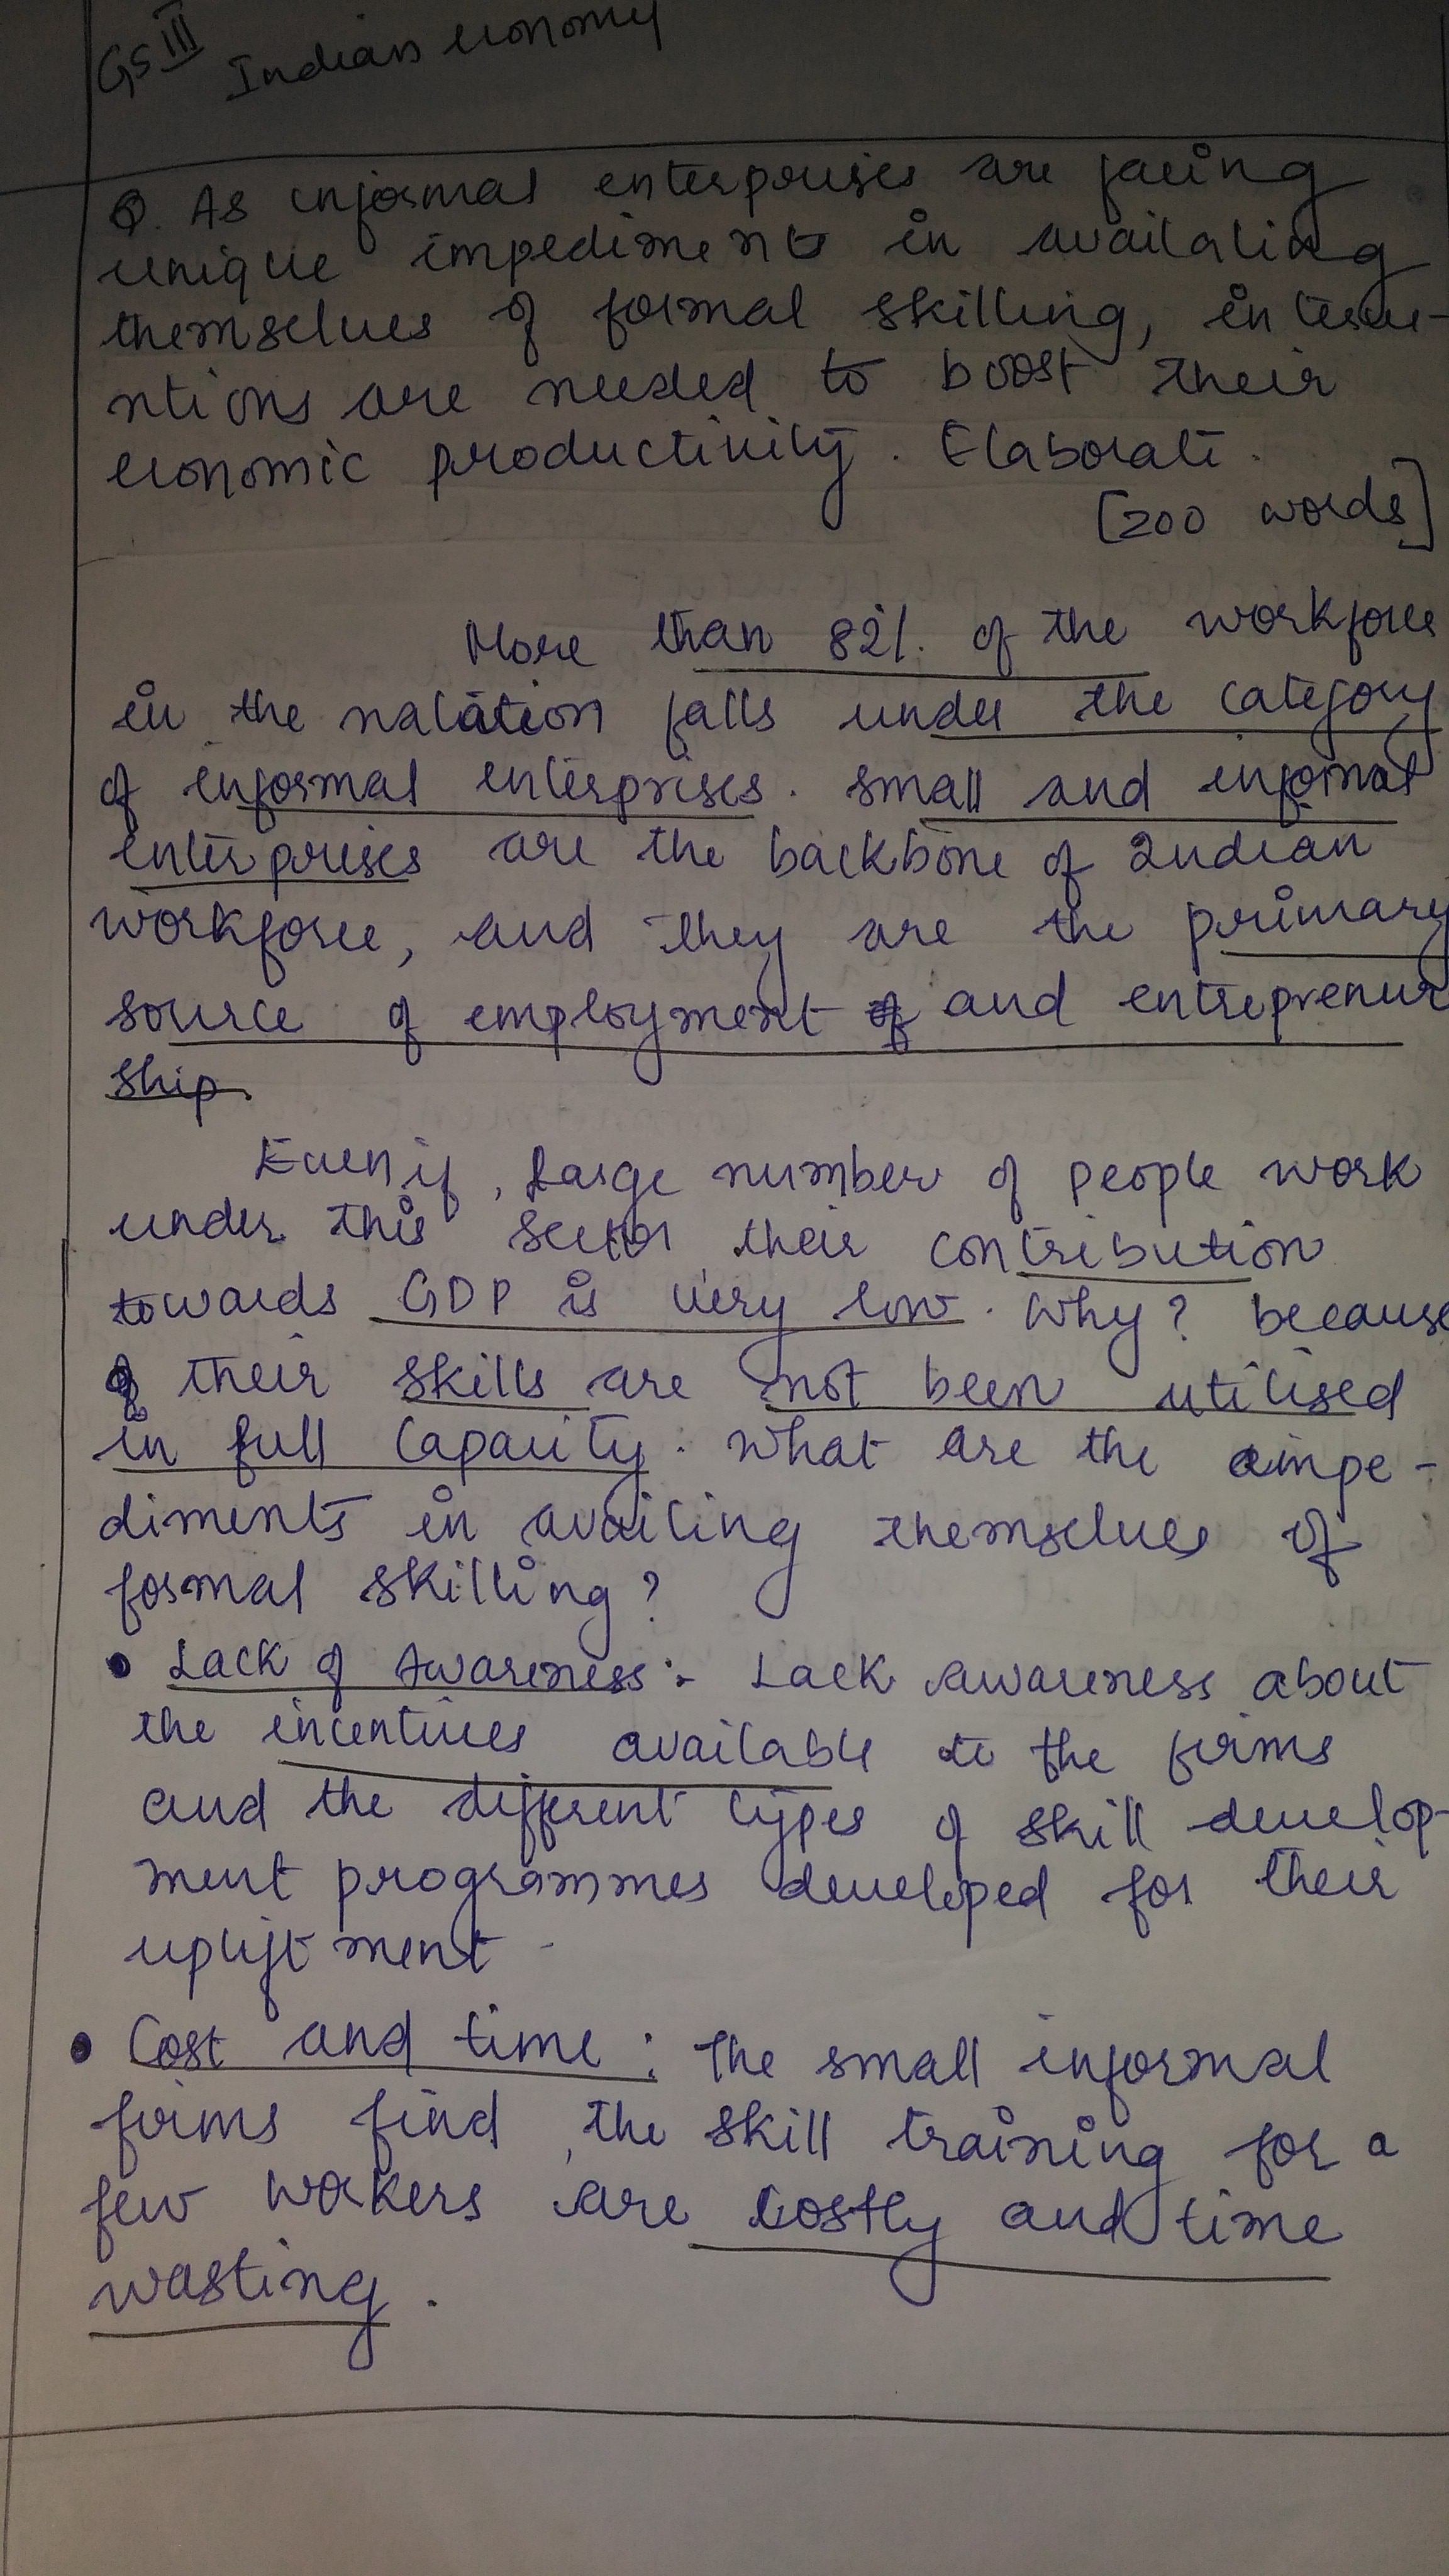 GS III Indian economy
Q. As informal enterprises are facing
unique impediments in availaling
themselves of formal skilling, interve-
ntions are needed to boost their
economic productivity. Elaborate.
[200 words]
More than 82% of the workforce
in the nalation falls under the category
of informal enterprises. small and informal
enterprises are the backbone of Indian
workforce, and they are the primary
source of employment of and entreprenur
ship.
Even if, large number of people work
under this sector their contribution
towards GDP is very low. Why? because
of their skills are not been utilised
in full capacity. What are the impe-
diments in availing themselves of
formal skilling?
• Lack of Awareness:- Lack awareness about
the incentives available to the firms
and the different types of skill develop-
ment programmes developed for their
upliftment -
• Cost and time: The small informal
firms find, the skill training for a
few workers are costly and time
wasting.